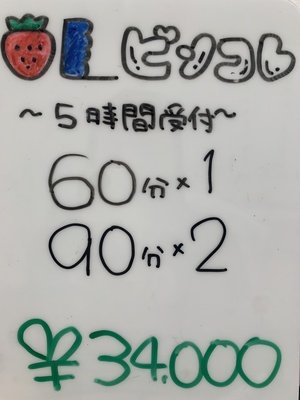 ビンコレ
~5時間受付~
60分×1
90分×2
¥34.000